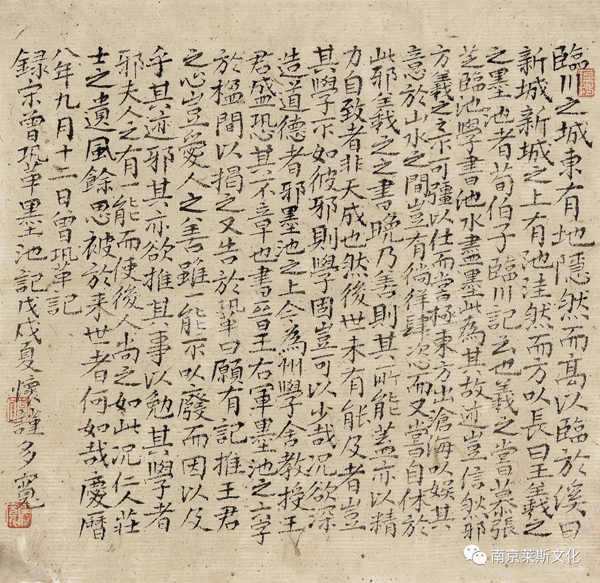 臨川之城東有地隱然而高以臨於溪曰
新城新城之上有池洼然而方以長曰王羲之
之墨池者荀伯子臨川記云也羲之嘗慕張
芝臨池學書池水盡墨此為其故迹豈信然邪
方羲之之不可彊以仕而嘗極東方出滄海以娛其
意於山水之間豈有徜徉肆恣而又嘗自休於
此邪羲之之書晚乃善則其所能蓋亦以精
力自致者非天成也然後世未有能及者豈
其學不如彼邪則學固豈可以少哉況欲深
造道德者邪墨池之上今為州學舍教授王
君盛恐其不章也書晉王右軍墨池之字
於楹間以揭之又告於鞏曰願有記推王君
之心豈愛人之善雖一能不以廢而因以及
乎其迹邪其亦欲推其事以勉其學者
邪夫人之有一能而使後人尚之如此況仁人莊
士之遺風餘思被於来世者何如哉慶曆
八年九月十二日曾鞏記
錄宋曾鞏墨池記戊戌夏
南京莱斯文化